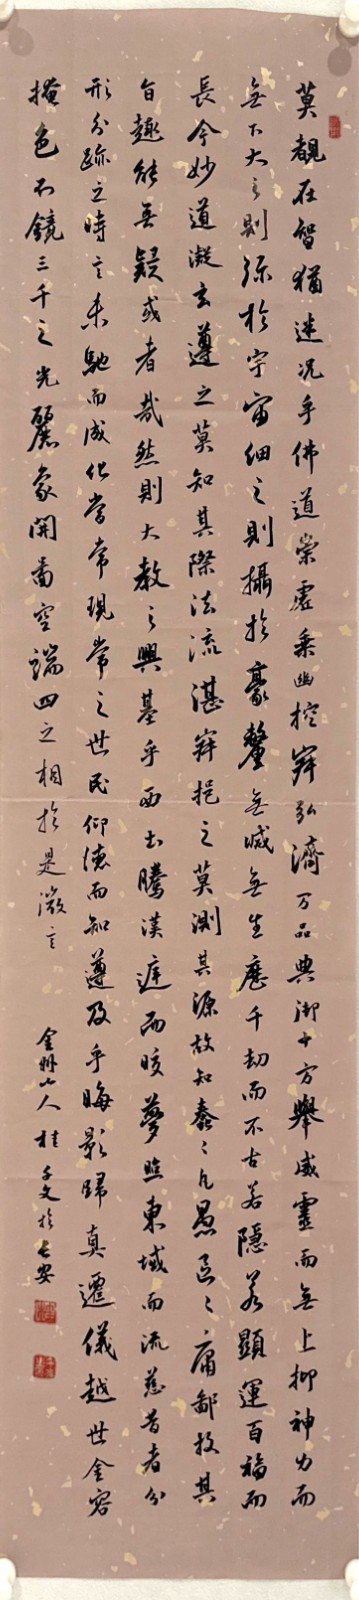 莫覩在智猶迷况乎佛道崇虛乘幽控寂弘濟万品典御十方舉威靈而無上抑神力而
無下大之則彌於宇宙細之則攝於豪釐無滅無生歷千劫而不古若隱若顯運百福而
長今妙道凝玄遵之莫知其際法流湛寂挹之莫測其源故知蠢々凡愚區々庸鄙投其
旨趣能無疑或者哉然則大教之興基乎西土騰漢庭而皎夢照東域而流慈昔者分
形分跡之時言未馳而成化當常現常之世民仰德而知遵及乎晦影歸真遷儀越世金容
掩色不鏡三千之光麗象開圖空端四之相於是微言
金州山人桂千文於长安